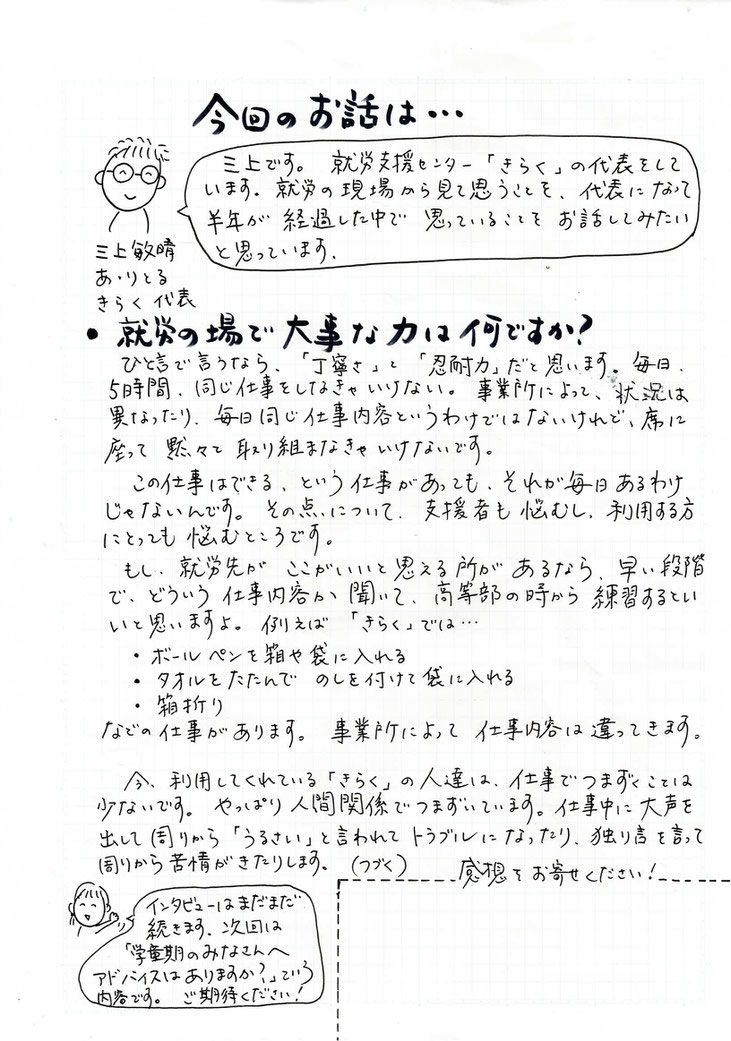 今回のお話は…
三上です。就労支援センター「きらく」の代表をして
います。就労の現場から見て思うことを、代表になって
半年が経過した中で思っていることをお話してみたい
と思っています。
三上敏晴
あ・りとる
きらく代表
• 就労の場で大事な力は何ですか?
ひと言で言うなら、「丁寧さ」と「忍耐力」だと思います。毎日、
5時間、同じ仕事をしなきゃいけない。事業所によって、状況は
異なったり、毎日同じ仕事内容というわけではないけれど、席に
座って黙々と取り組まなきゃいけないです。
この仕事はできる、という仕事があっても、それが毎日あるわけ
じゃないんです。その点について、支援者も悩むし、利用する方
にとっても悩むところです。
もし、就労先がここがいいと思える所があるなら、早い段階
で、どういう仕事内容か聞いて、高等部の時から練習するとい
いと思いますよ。例えば「きらく」では…
・ボールペンを箱や袋に入れる
・タオルをたたんでのしを付けて袋に入れる
・箱折り
などの仕事があります。事業所によって仕事内容は違ってきます。
今、利用してくれている「きらく」の人達は、仕事でつまずくことは
少ないです。やっぱり人間関係でつまずいています。仕事中に大声を
出して周りから「うるさい」と言われてトラブルになったり、独り言を言って
周りから苦情がきたりします。(つづく)
感想をお寄せください!
インタビューはまだまだ
続きます、次回は
「学童期のみなさんへ
アドバイスはありますか?」という
内容です。ご期待ください!